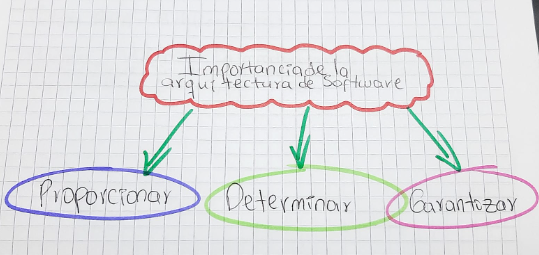 Importancia de la
arquitectura de Software
Proporcionar
Determinar
Garantizar